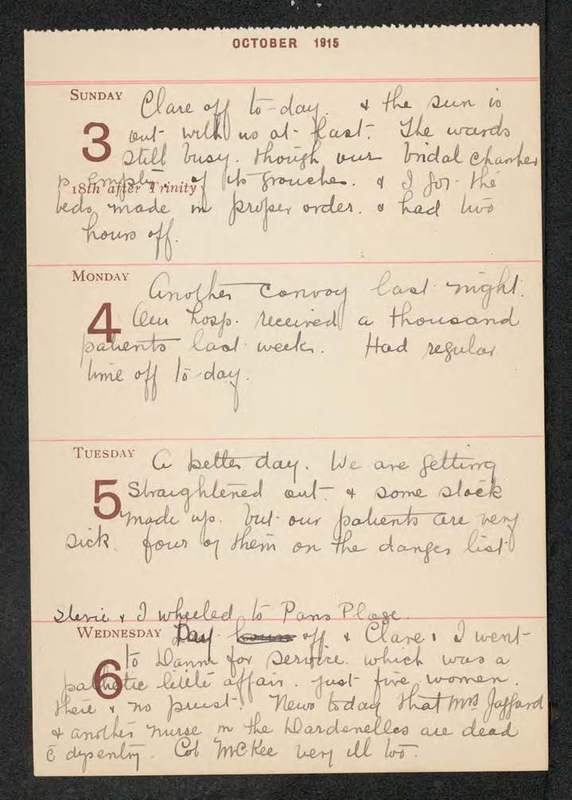 OCTOBER 1915
SUNDAY
3
18th after Trinity
Clare off to-day. & the sun is
out with us at last. The wards
still busy. though our bridal chamber
is empty of its grouches. & I got the
beds made in proper order. & had two
hours off.
MONDAY
4
Another convoy last night.
Our hosp. received a thousand
patients last week. Had regular
time off to-day.
TUESDAY
5
A better day. We are getting
straightened out. & some stock
made up. but our patients are very
sick. four of them on the danger list
& I wheeled to Paris Plage.
WEDNESDAY
6
Day off & Clare & I went
to Danne for service. which was a
pathetic little affair. just five women.
there & no priest. News today that Mrs Jaggard
& another nurse in the Dardenelles are dead
c̄ dysentry. Col McKee very ill too.